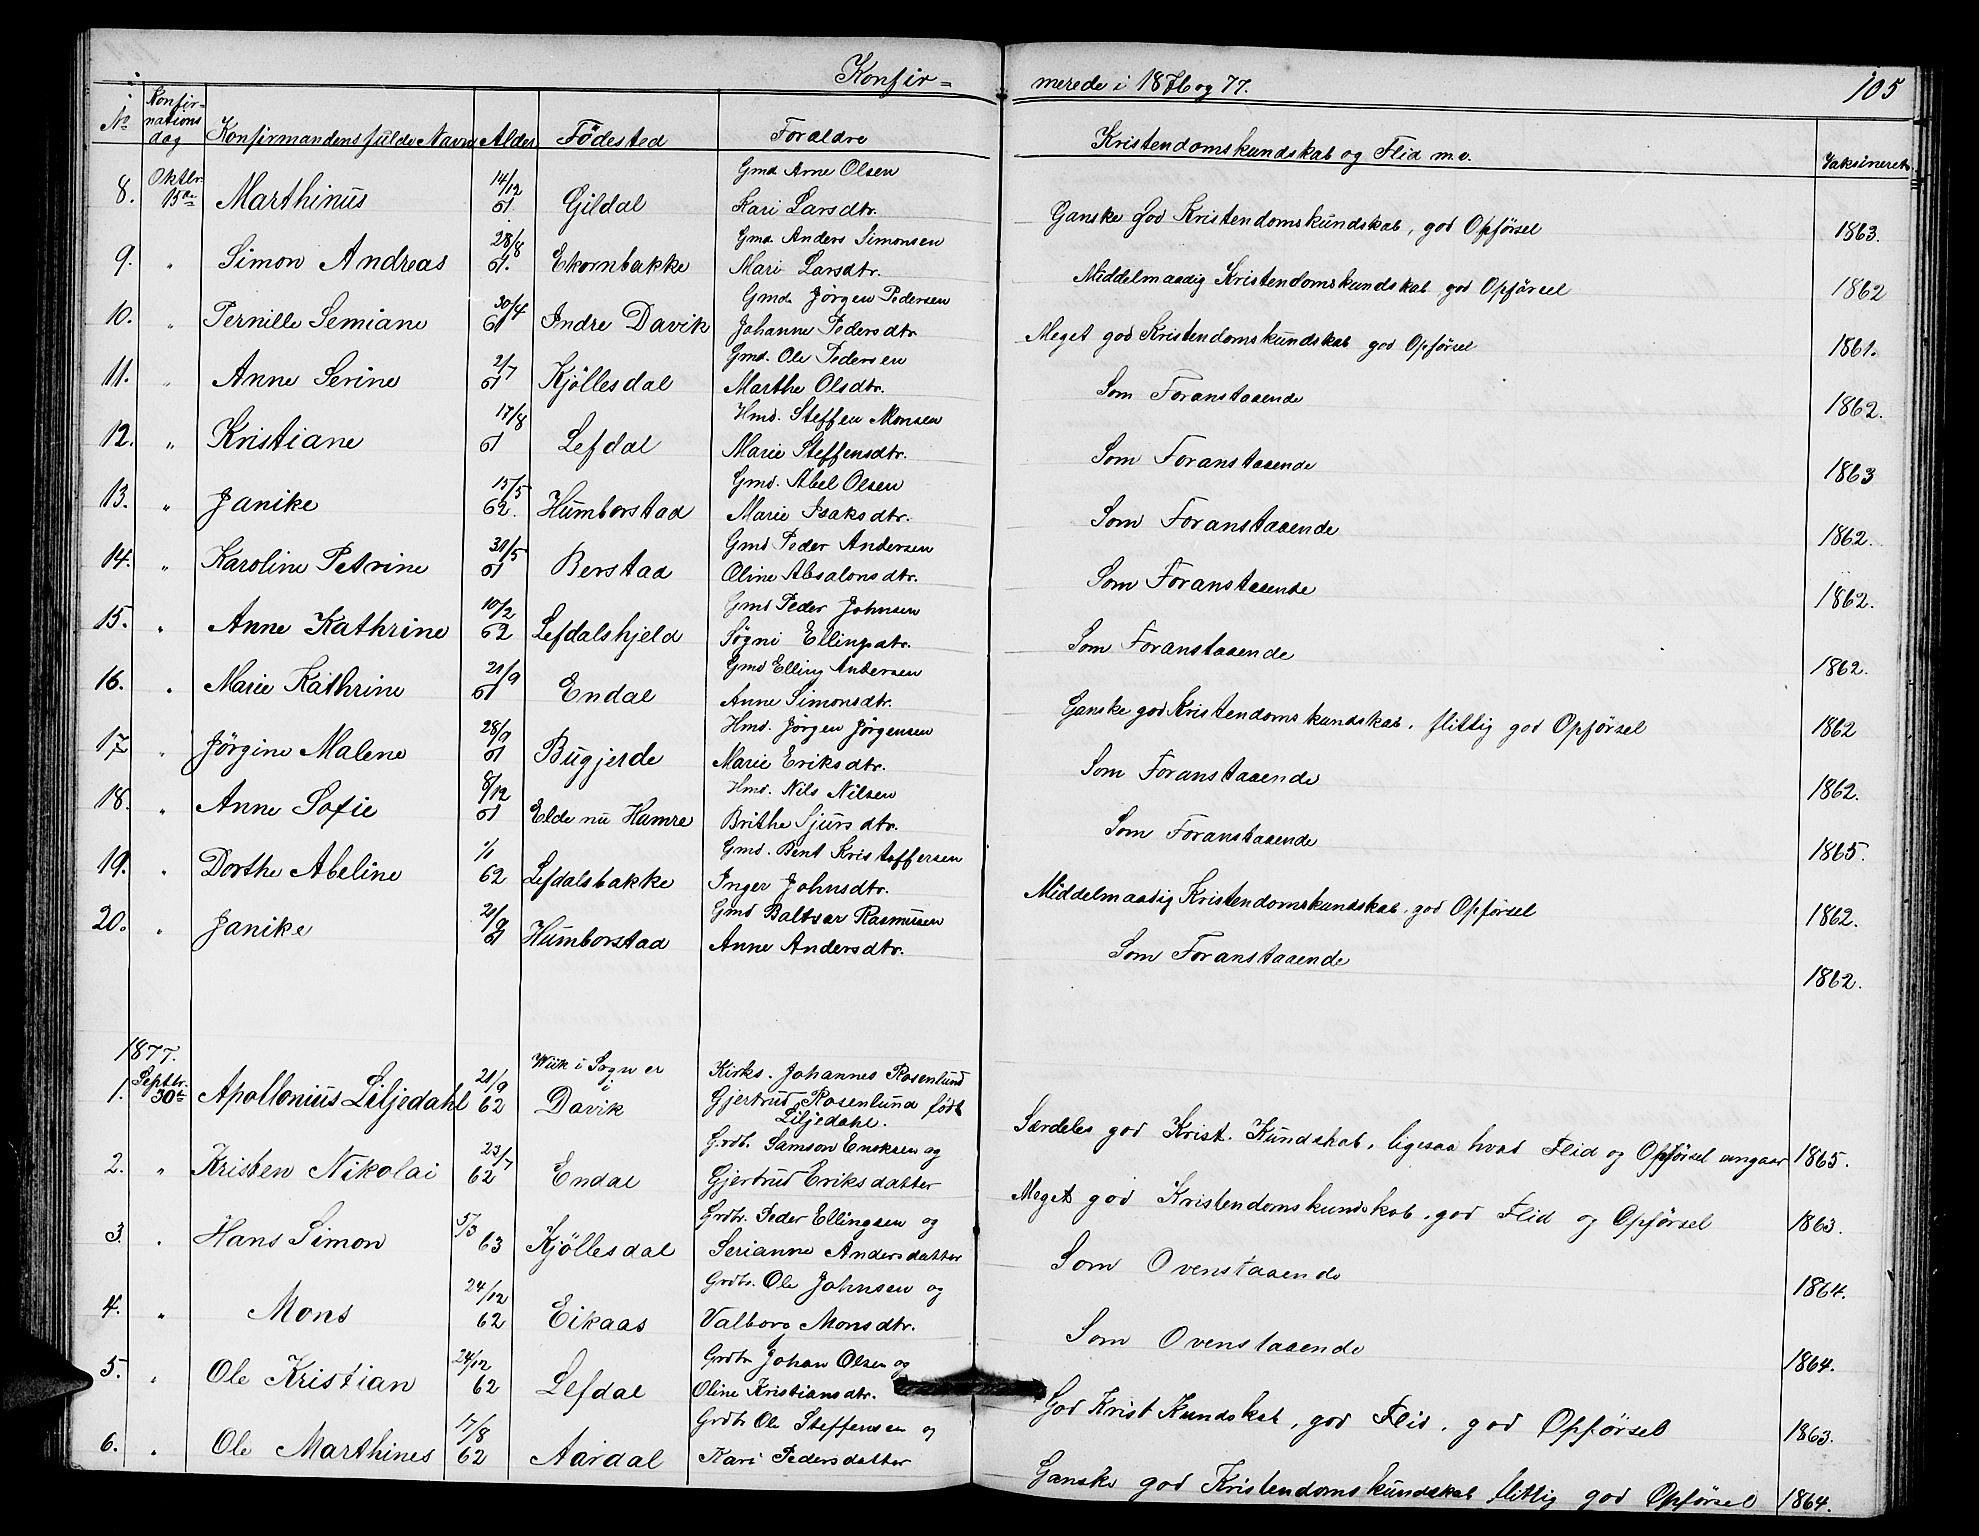 Konfir= merede i 1876 og 77. 105
No Konfir-nations dag Konfirmandens fulde Navn Alder Födested Foraldre Kristendomskundskab og Flid m.v. Vaksineret
8. Oktbr. 15de Marthinus 14/12 61. Gildal Gmd Arne Olsen
Kari Larsdtr. Ganske god Kristendomskundskab, god Opförsel 1863.
9. " Simon Andreas 28/8 61. Ekornbakke Gmd Anders Simonsen
Mari Larsdtr. Middelmaadig Kristendomskundskab god Opförsel 1862
10. " Pernille Semiane 30/4 61 Indre Davik Gmd. Jörgen Pedersen
Johanne Pedersdtr. Meget god Kristendomskundskab god Opförsel 1861.
11. " Anne Serine 2/7 61 Kjöllesdal Gmd. Ole Pedersen
Marthe Olsdtr. Som Foranstaaende 1862.
12. " Kristiane 17/8 61 Lefdal Hmd. Steffen Monsen
Marie Steffensdtr. Som Foranstaaende 1863
13. " Janike 15/5 62. Humborstad Gmd. Abel Olsen
Marie Isaksdtr. Som Foranstaaende 1862.
14. " Karoline Petrine 31/5 61 Berstad Gmd Peder Andersen
Oline Absalonsdtr. Som Foranstaaende 1862.
15. " Anne Kathrine 10/2 62 Lefdalshjeld Gmd Peder Johnsen
Søgni Ellingsdtr. Som Foranstaaende 1862.
16. " Marie Kathrine 21/9 61 Endal Gmd Elling Andersen
Anne Simonsdtr. Ganske god Kristendomskundskab, flittig god Opförsel 1862
17 " Jörgine Malene 28/9 61 Bugjerde Hmd. Jörgen Jörgensen
Marie Eriksdtr. Som Foranstaaende 1862.
18. " Anne Sofie 8/12 61 Elde nu Hamre Hmd. Nils Nilsen
Brithe Sjursdtr. Som Foranstaaende 1865.
19. " Dorthe Abeline 1/1 62 Lefdalsbakke Gmd. Bent Kristoffersen
Inger Johnsdtr. Middelmaadig Kristendomskundskab, god Opförsel 1862.
20. " Janike 21/9 61 Humborstad Gmd Baltser Rasmusen
Anne Andersdtr. Som Foranstaaende 1862.
1877.
1. Septbr. 30te Apollonius Liljedahl 21/9 62 Wiik i Sogn er i Davik Kirks. Johannes Rosenlund
Gjertrud Rosenlund födt
Liljedahl. Særdeles god Krist. Kundskab, ligesaa hvad Flid og Opförsel angaar 1865.
2. " Kristen Nikolai 23/7 62 Endal Grdb. Samson Enoksen og
Gjertrud Eriksdatter Meget god Kristendomskundskab, god Flid og Opförsel 1863.
3. " Hans Simon 5/3 63 Kjöllesdal Grdbr. Peder Ellingsen og
Serianne Andersdatter Som Ovenstaaende 1864.
4. " Mons 24/12 62 Eikaas Grdbr. Ole Johnsen og
Valborg Monsdtr. Som Ovenstaaende 1864.
5. " Ole Kristian 24/12 62 Lefdal Grdbr Johan Olsen og
Oline Kristiansdtr. God Krist Kundskab, god Flid, god Opförsel 1863.
6. " Ole Marthines 17/8 62 Aardal Grdbr Ole Steffensen og
Kari Pedersdatter Ganske god Kristendomskundskab flittig god Opförsel 1864.